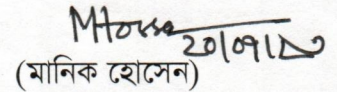 MHosse
20/09/20
(মানিক হোসেন)